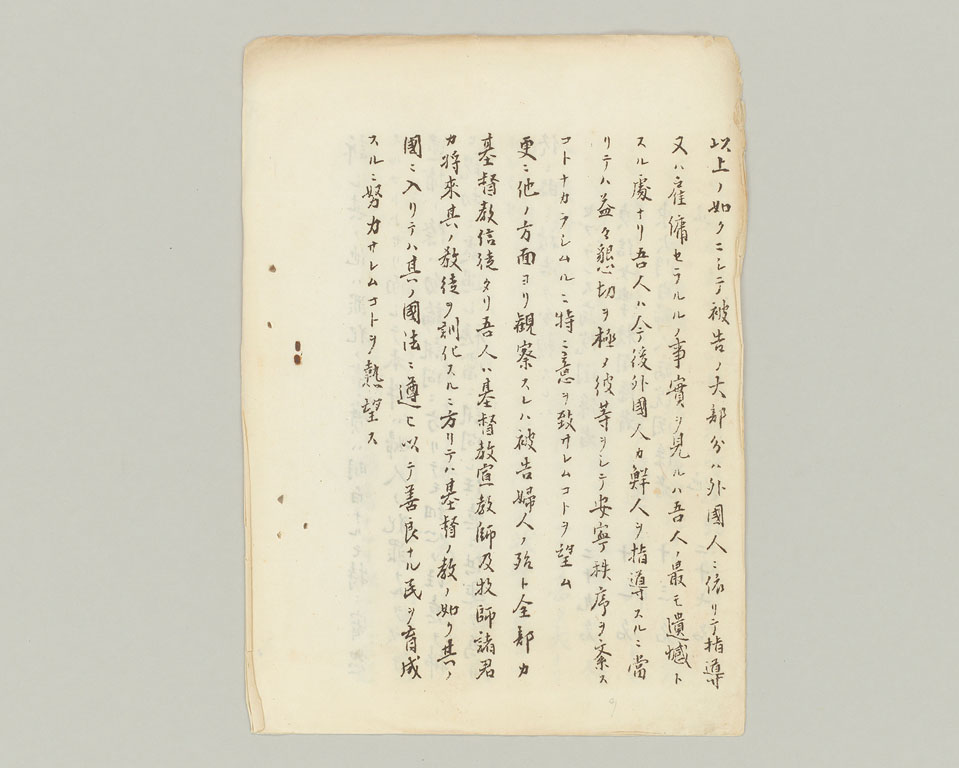 以上ノ如クニシテ被告ノ大部分ハ外國人ニ依リテ指導
又ハ雇傭セラルルノ事實ヲ見ルハ吾人ノ最モ遺憾ト
スル處ナリ吾人ハ今後外國人カ鮮人ヲ指導スルニ當
リテハ益々懇切ヲ極メ彼等ヲシテ安寧秩序ヲ紊ス
コトナカラシムルニ特ニ意ヲ致サレムコトヲ望ム
更ニ他ノ方面ヨリ観察スレハ被告婦人ノ殆ト全部カ
基督教信徒タリ吾人ハ基督教宣教師及牧師諸君
カ將來其ノ教徒ヲ訓化スルニ方リテハ基督ノ教ノ如ク其ノ
國ニ入リテハ其ノ國法ニ遵ヒ以テ善良ナル民ヲ育成
スルニ努力サレムコトヲ熱望ス